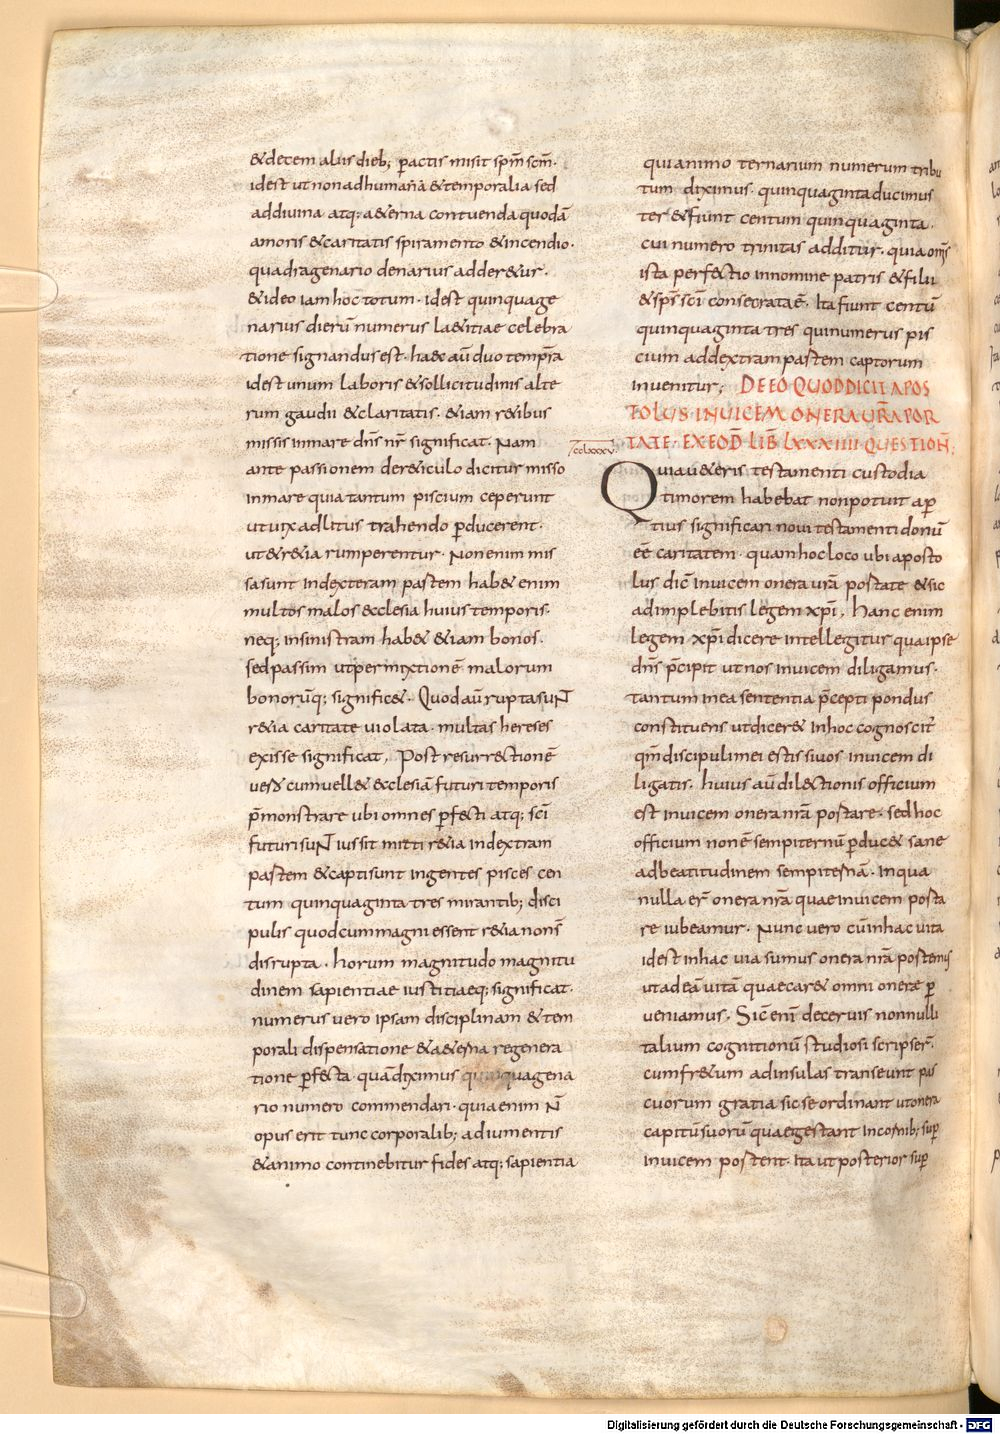 &decem aliis dieb; ꝑactis misit sp̄m sc̄m·
idest ut non adhumana &temporalia sed
addiuina atq; a&erna contuenda quodā
amoris &caritatis spiramento &incendio·
quadragenario denarius adder&ur·
&ideo iam hoc totum· idest quinquage
narius dierū numerus la&itiae celebra
tione signandus est· haec aū duo tempr̄a
idest unum laboris &sollicitudinis alte
rum gaudii &claritatis· &iam r&ibus
missis inmare dn̄s nr̄ significat· Nam
ante passionem de r&iculo dicitur misso
inmare quia tantum piscium ceperunt
ut uix ad litus trahendo ꝑducerent·
ut&r&ia rumperentur· Non enim mis
sa sunt indexteram partem hab& enim
multos malos &cclesia huius temporis·
neq; insinistram hab& &iam bonos·
sed passim ut permixtionē malorum
bonorūq; signific&· Quod aū rupta suNT
r&ia caritate uiolata· multas hereses
exisse significat, Post resurr&tionē
uero cum uell& &cclesiā futuri temporis
p̄monstrare ubi omnes ꝑf&ti atq; sc̄i
futuri suNT iussit mitti r&ia indextram
partem &capti sunt ingentes pisces cen
tum quinquaginta tres mirantib; disci
pulis quod cum magni essent r&ia non s̄
disrupta· horum magnitudo magnitu
dinem sapientiae iustitiaeq; significat·
numerus uero ipsam disciplinam &tem
porali dispensatione &a&erna regenera
tione ꝑf&ta· quā diximus quinquagena
rio numero commendari· quia enim N̄
opus erit tunc corporalib; adiumentis
&animo continebitur fides atq; sapientia
qui animo ternarium numerum tribu
tum diximus· quinquaginta ducimus
ter &fiunt centum quinquaginta·
cui numero trinitas additur· quia om̄s
ista perf&tio innomine patris &filii
&sp̄s sc̄i consecrata ē· Ita fiunt centū
quinquaginta tres qui numerus pis
cium addextram partem captorum
inuenitur; DE EO QUOD DICIT APOS
TOLUS· INUICEM ONERA UR̄A POR
TATE· EX EOD̄ LIB̄ LXXXIIII QUESTION̄·
cclxxxv·
Quia u&eris testamenti custodia
timorem habebat non potuit aꝑ
tius significari noui testamenti donū
eē caritatem· quam hoc loco ubi aposto
lus dic̄ inuicem onera urā portate &sic
adimplebitis legem xp̄i, Hanc enim
legem xp̄i dicere intellegitur qua ipse
dn̄s p̄cipit ut nos inuicem diligamus·
tantum in ea sententia p̄cepti pondus
constituens ut dicer& Inhoc cognoscit̄
qm̄ discipuli mei estis si uos inuicem di
ligatis· huius aū dil&tionis officium
est inuicem onera nrā portare· sed hoc
officium non ē sempiternū ꝑduc& sane
ad beatitudinem sempiternā· In qua
nulla er̄ onera nrā quae inuicem porta
re iubeamur· Nunc uero cū inhac uita
idest inhac uia sumus onera nrā portemus
ut ad eā uitā quae car& omni onere ꝑ
ueniamus· Sic̄ eni de ceruis nonnulli
talium cognitionū studiosi scripser̄·
cum fr&um ad insulas transeunt pas
cuorum gratia sic se ordinant ut onera
capitū suorū quae gestant in cornib; suꝑ
inuicem portent· Ita ut posterior suꝑ
Digitalisierung gefördert durch die Deutsche Forschungsgemeinschaft - DFG